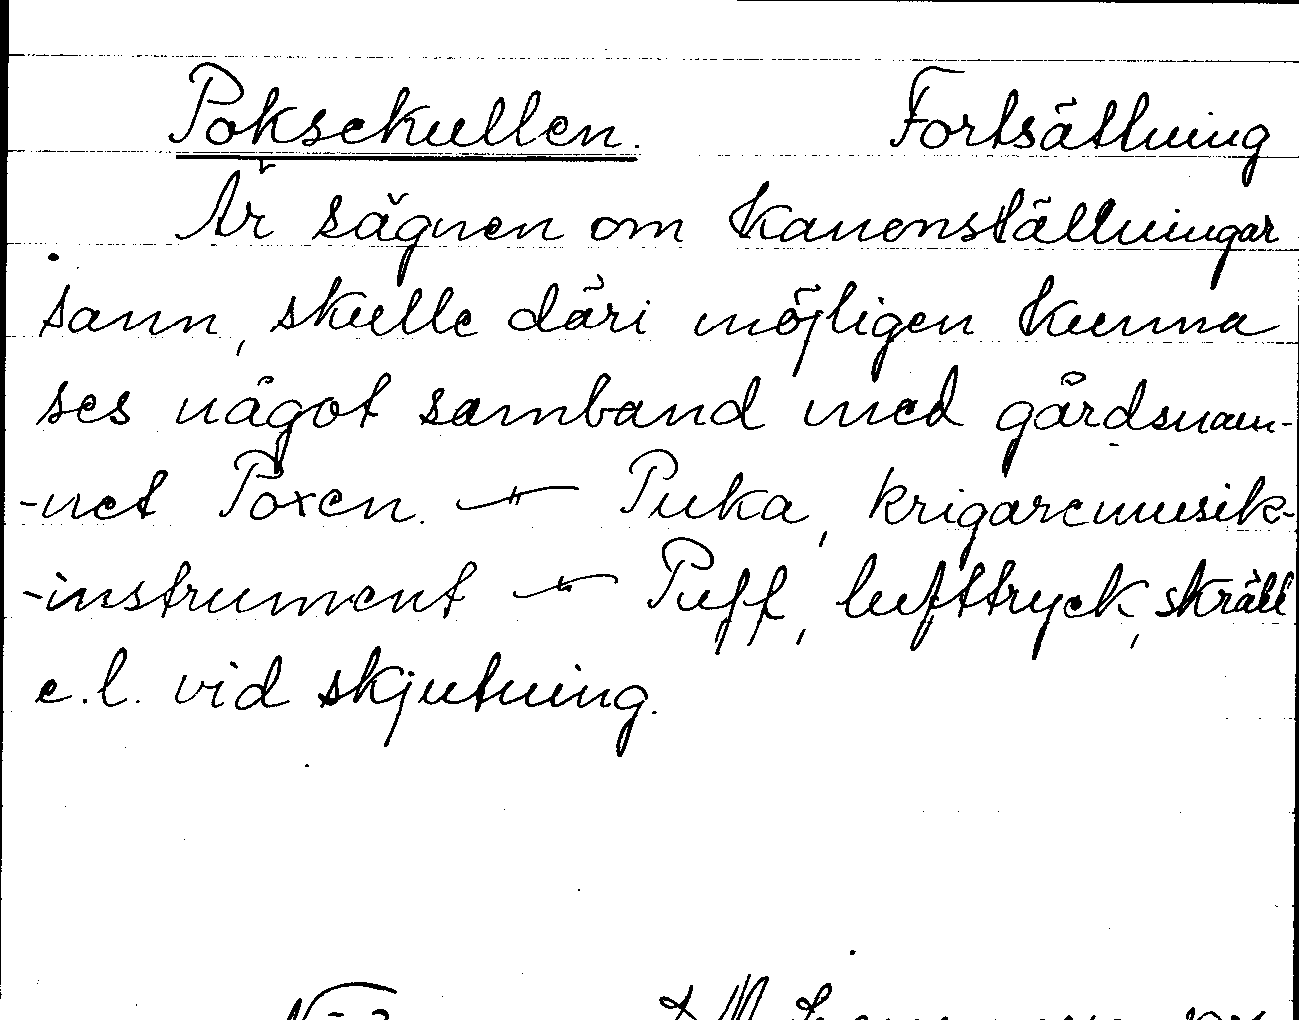 Poksekullen. Fortsättning
Är sägnen om kanonställningar
sann, skulle däri möjligen kunna
ses något samband med gårdsnam-
-net Poxen. — " — Puka, krigaremusik-
-instrument — " — Puff, lufttryck, skräll
e.l. vid skjutning.